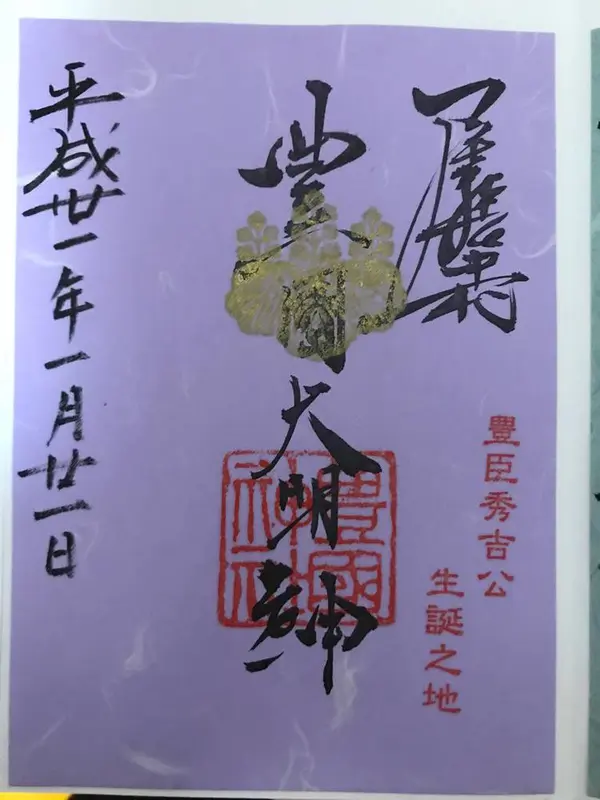 豊臣秀吉公
生誕之地
豊國大明神
豊國
神社
平成廿一年一月廿一日